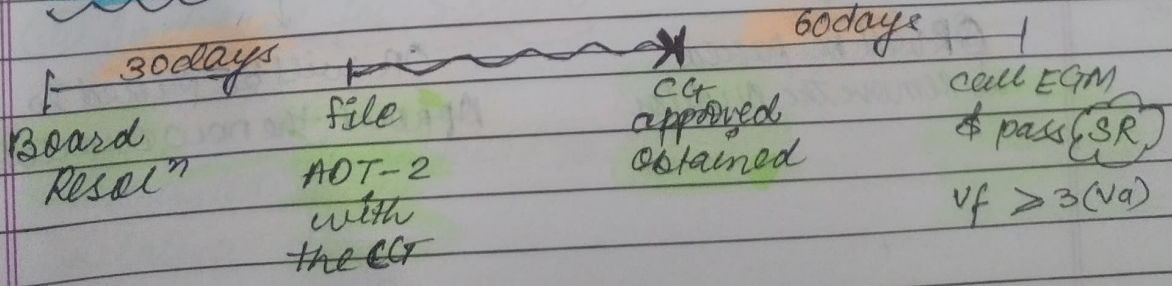 30days
60days
Board
Resolⁿ
file
ADT-2
with
the CG
CG
approved
obtained
call EGM
& pass (SR)
Vf ≥ 3(Va)